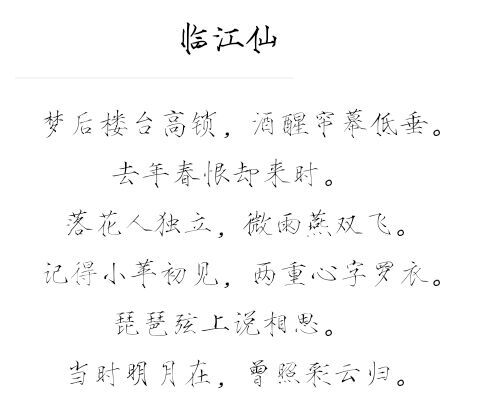 临江仙
梦后楼台高锁，酒醒帘幕低垂。
去年春恨却来时。
落花人独立，微雨燕双飞。
记得小苹初见，两重心字罗衣。
琵琶弦上说相思。
当时明月在，曾照彩云归。